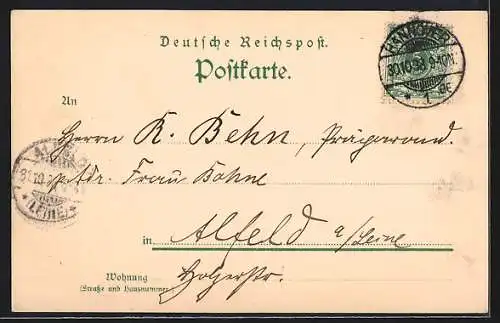 Deutsche Reichspost.
Postkarte.
HANNOVER
30.10.98. 9-10N.
* 1. *
An
Herrn K. Behn, Präparand.
ptAdr. Frau Kohne
ALFELD
(LEINE)
in Alfeld a/Leine
Holzerstr.
Wohnung
(Straße und Hausnummer)